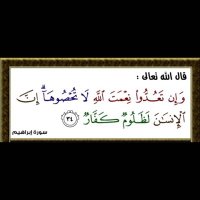 قال الله تعالى :
وَإِن تَعُدُّوا۟ نِعْمَتَ ٱللَّهِ لَا تُحْصُوهَآ ۗ إِنَّ
ٱلْإِنسَـٰنَ لَظَلُومٌ كَفَّارٌ ٣٤
سورة إبراهيم